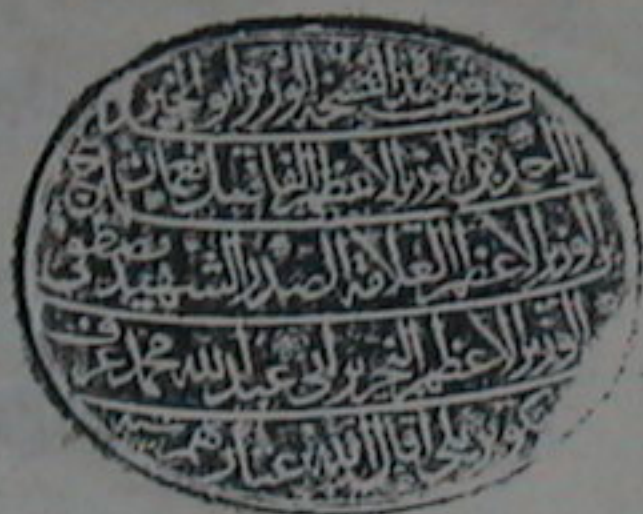 وقف هذه النسخة الوزير ابو الخير
احمد بن الوزير الاعظم الفاضل نعمان
بن الوزير الاعظم العلامة الصدر الشهيد مصطفى
الوزير الاعظم النحرير ابي عبد الله محمد عرف
بكوبريلي اقال الله عثارهم